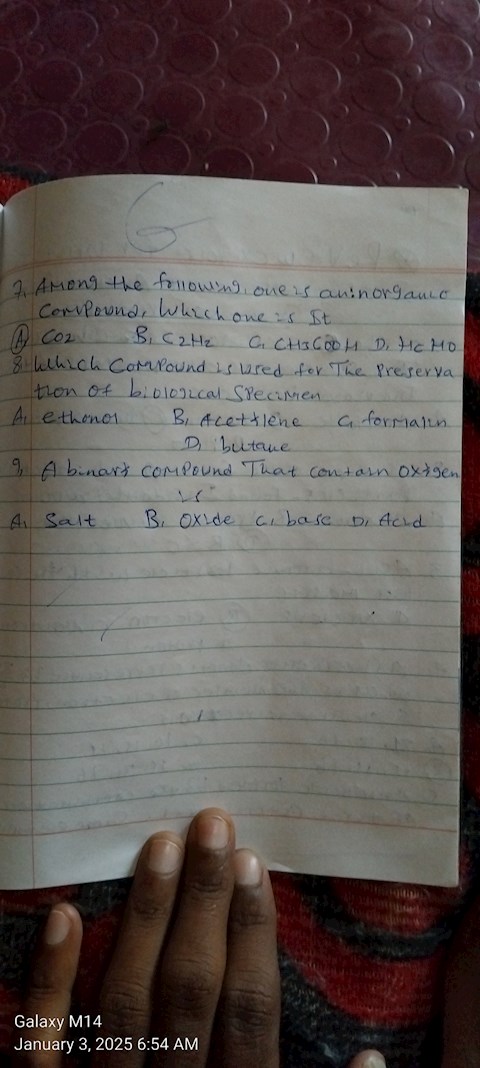 6
7, Among the following, one is an inorganic
Compound, Which one is It
A, CO2 B, C2H2 C, CH3COOH D, HCHO
8, Which Compound is used for The Preserva
tion of biological Specimen
A, ethonol B, Acetylene C, formalin
D, butane
9, A binary compound That contain oxygen
is
A, Salt B, oxide C, base D, Acid
Galaxy M14
January 3, 2025 6:54 AM